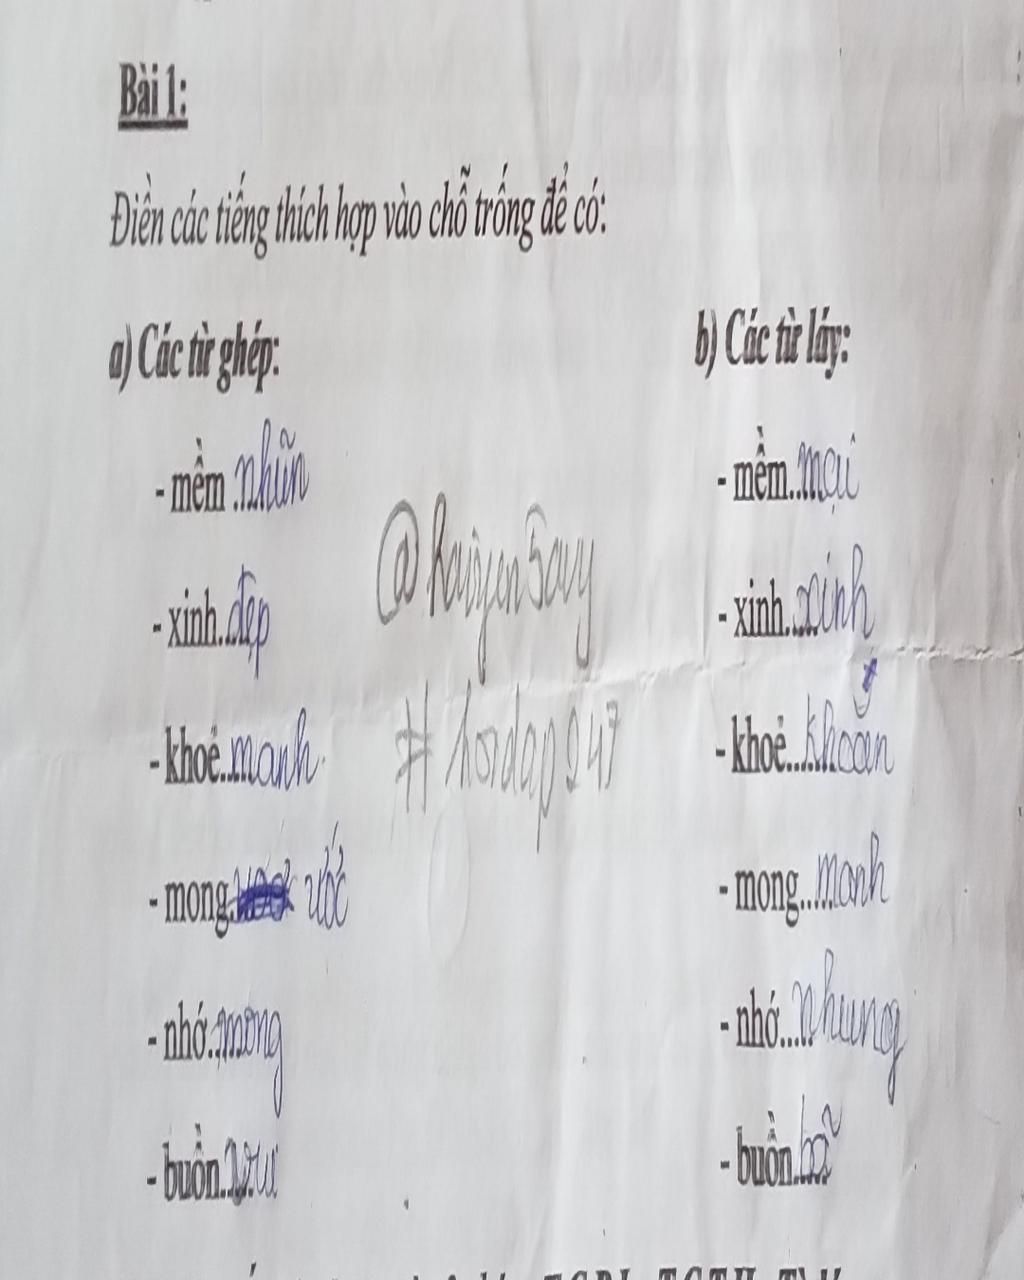 Bài 1:
Điền các tiếng thích hợp vào chỗ trống để có:
a) Các từ ghép:
b) Các từ láy:
- mềm nhũn
- mềm..mại
- xinh..đẹp
- xinh...xinh
- khoẻ..manh
- khoẻ...khoắn
- mong. ước
- mong....manh
- nhớ..mong
- nhớ....nhung
- buồn..vui
- buồn..bã
#hoidap247